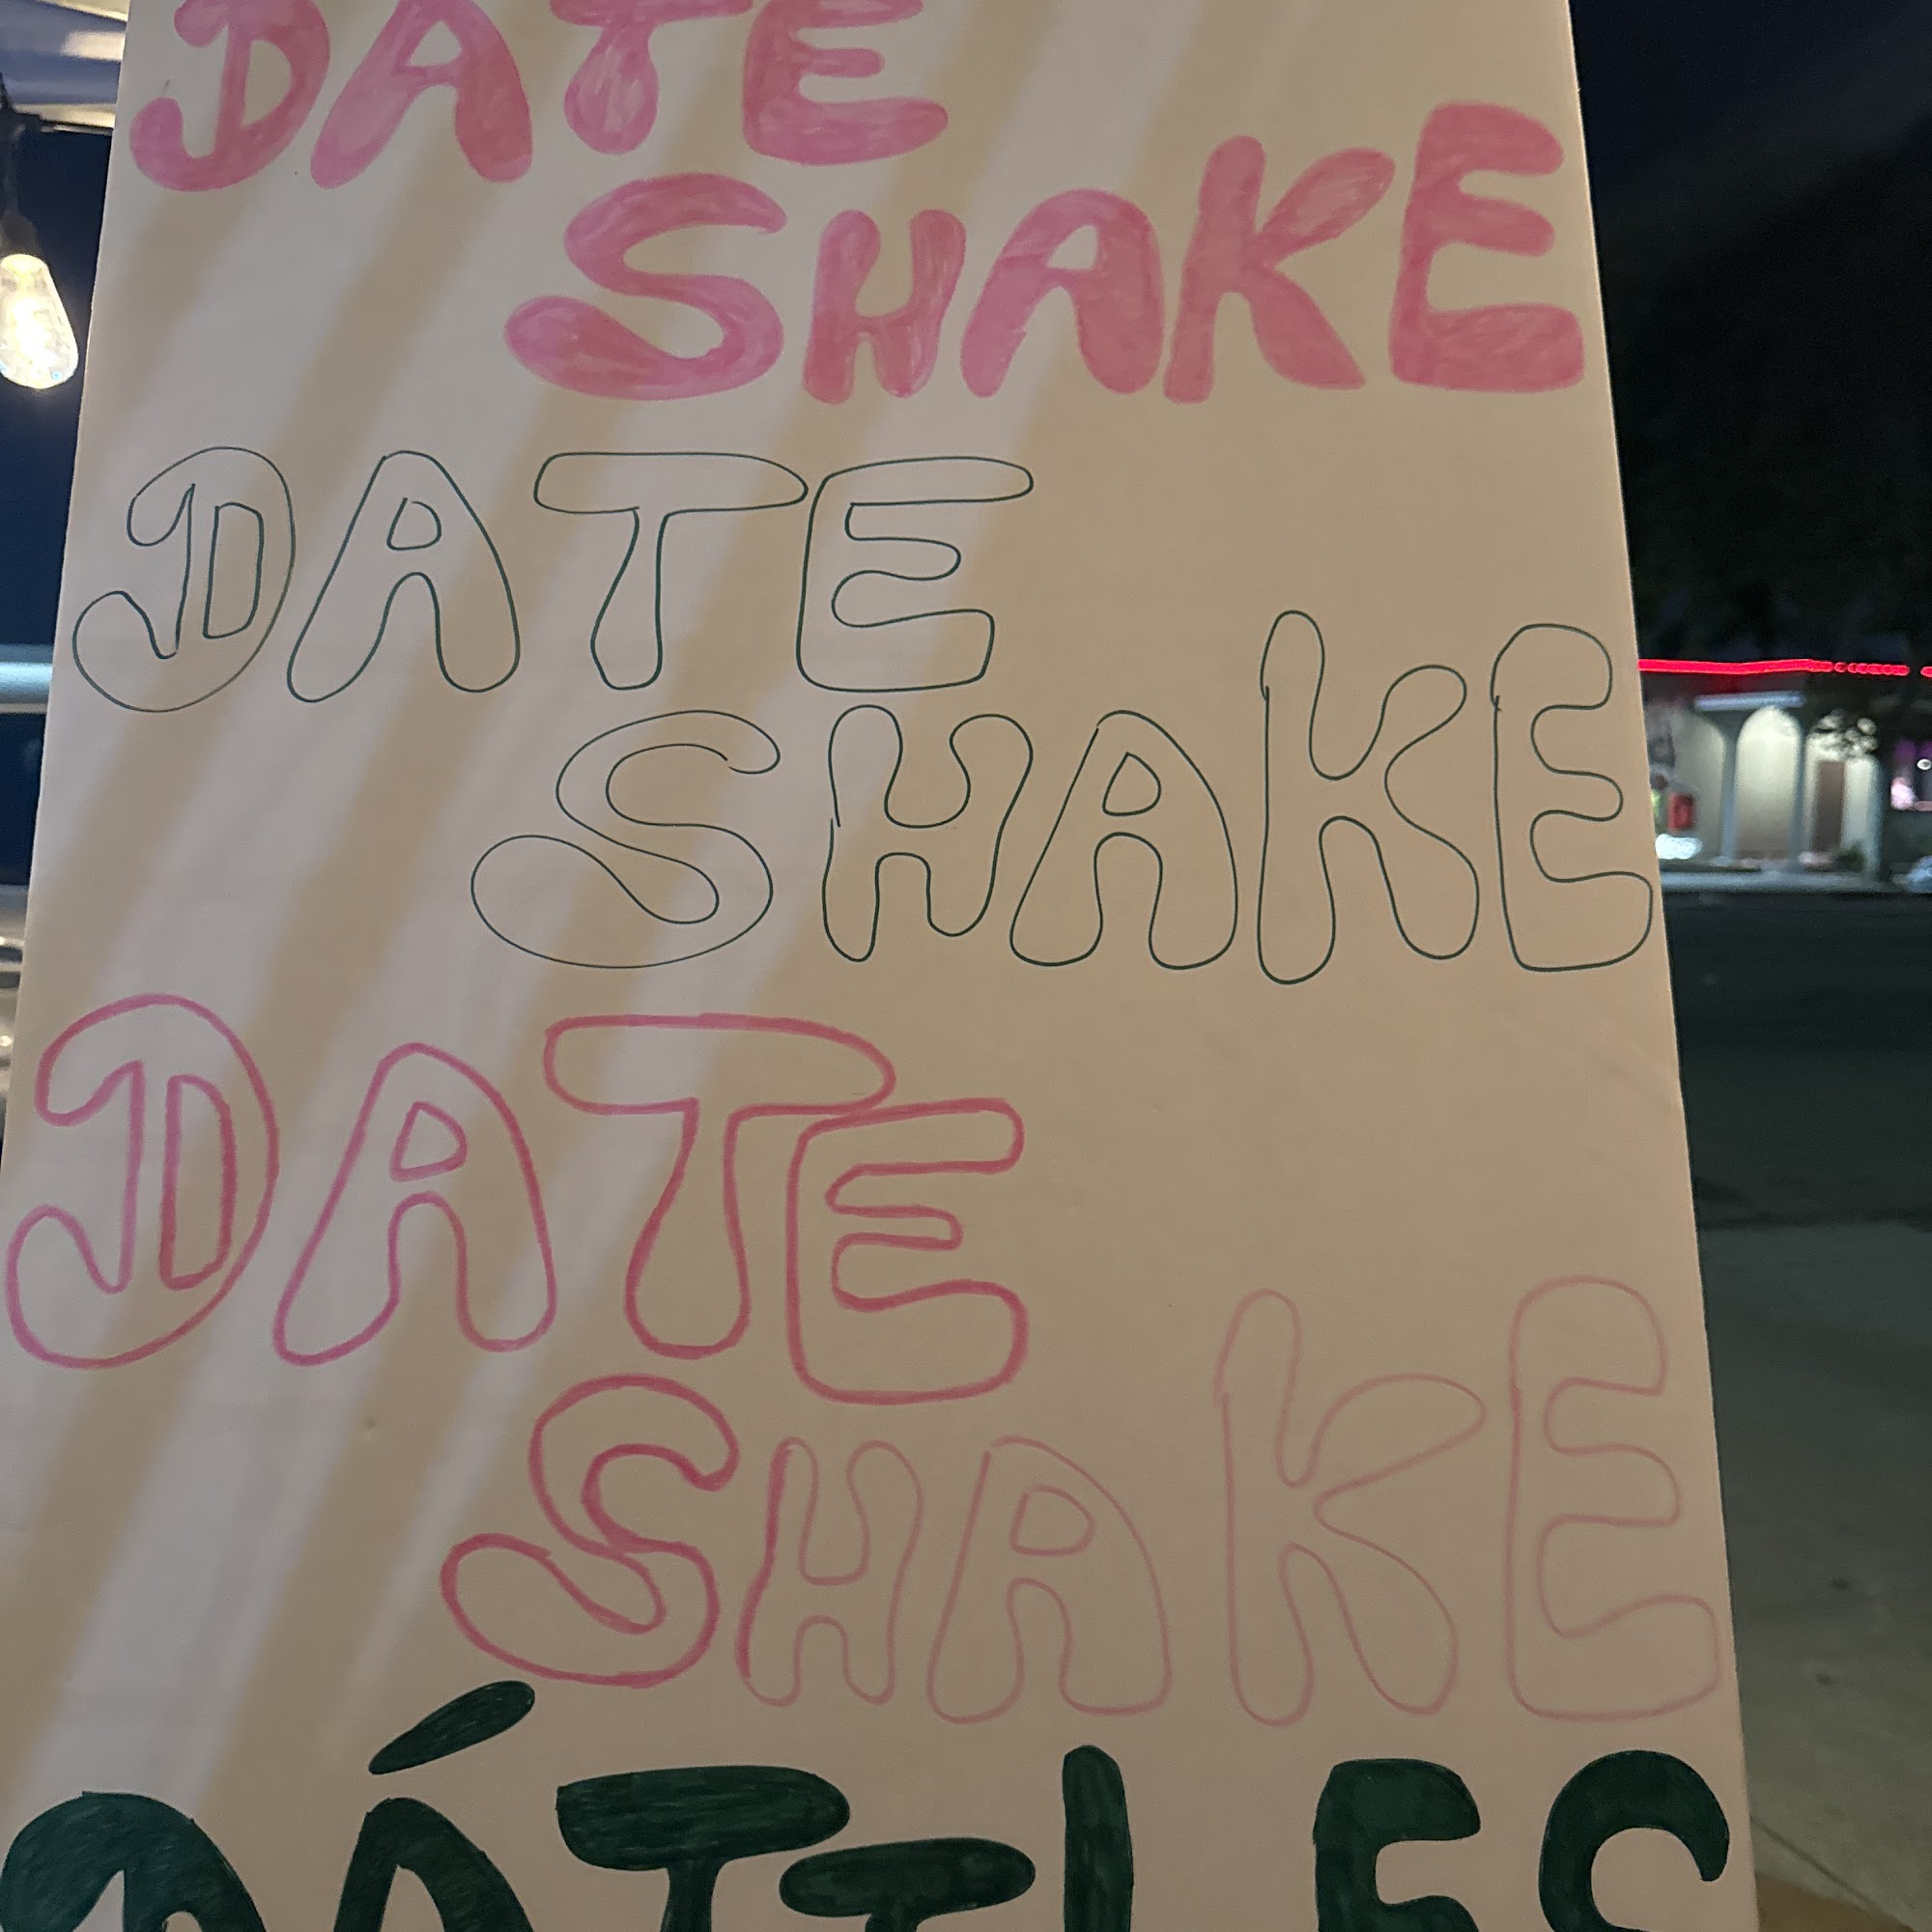 DATE
SHAKE
DATE
SHAKE
DATE
SHAKE
DÁTTLES